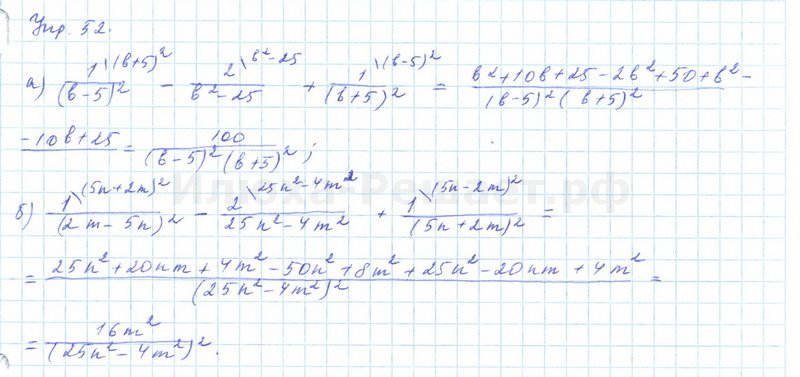 Упр. 52.
а) 1\(b+5)²/(b-5)² - 2\b²-25/b²-25 + 1\(b-5)²/(b+5)² = b²+10b+25-2b²+50+b²-/(b-5)²(b+5)²
-10b+25 = 100/(b-5)²(b+5)²;
б) 1\(5n+2m)²/(2m-5n)² - 2\25n²-4m²/25n²-4m² + 1\(5n-2m)²/(5n+2m)² =
= 25n²+20nm+4m²-50n²+8m²+25n²-20nm+4m²/(25n²-4m²)² =
= 16m²/(25n²-4m²)².
Ильха-Решает.рф